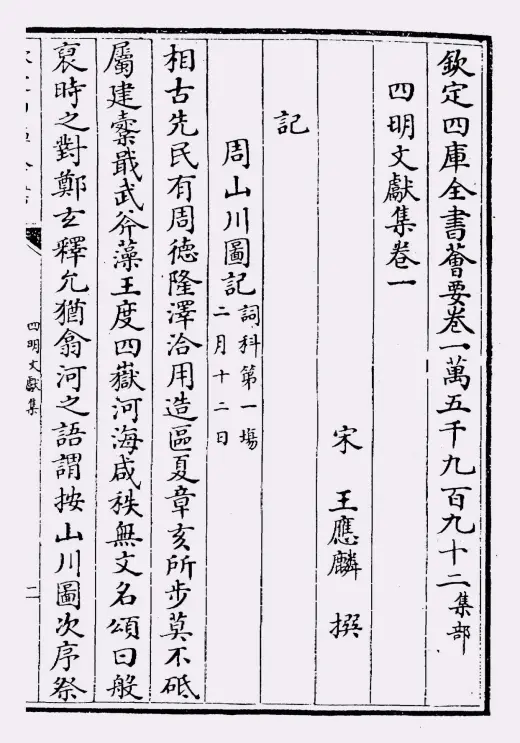 欽定四庫全書薈要卷一萬五千九百九十二集部
四明文獻集卷一
宋 王應麟 撰
記
周山川圖記詞科第一場
二月十二日
相古先民有周德隆澤洽用造區夏章亥所步莫不砥
屬建櫜戢武斧藻王度四嶽河海咸秩無文名頌曰般
裒時之對鄭玄釋允猶翕河之語謂按山川圖次序祭
四明文獻集
二